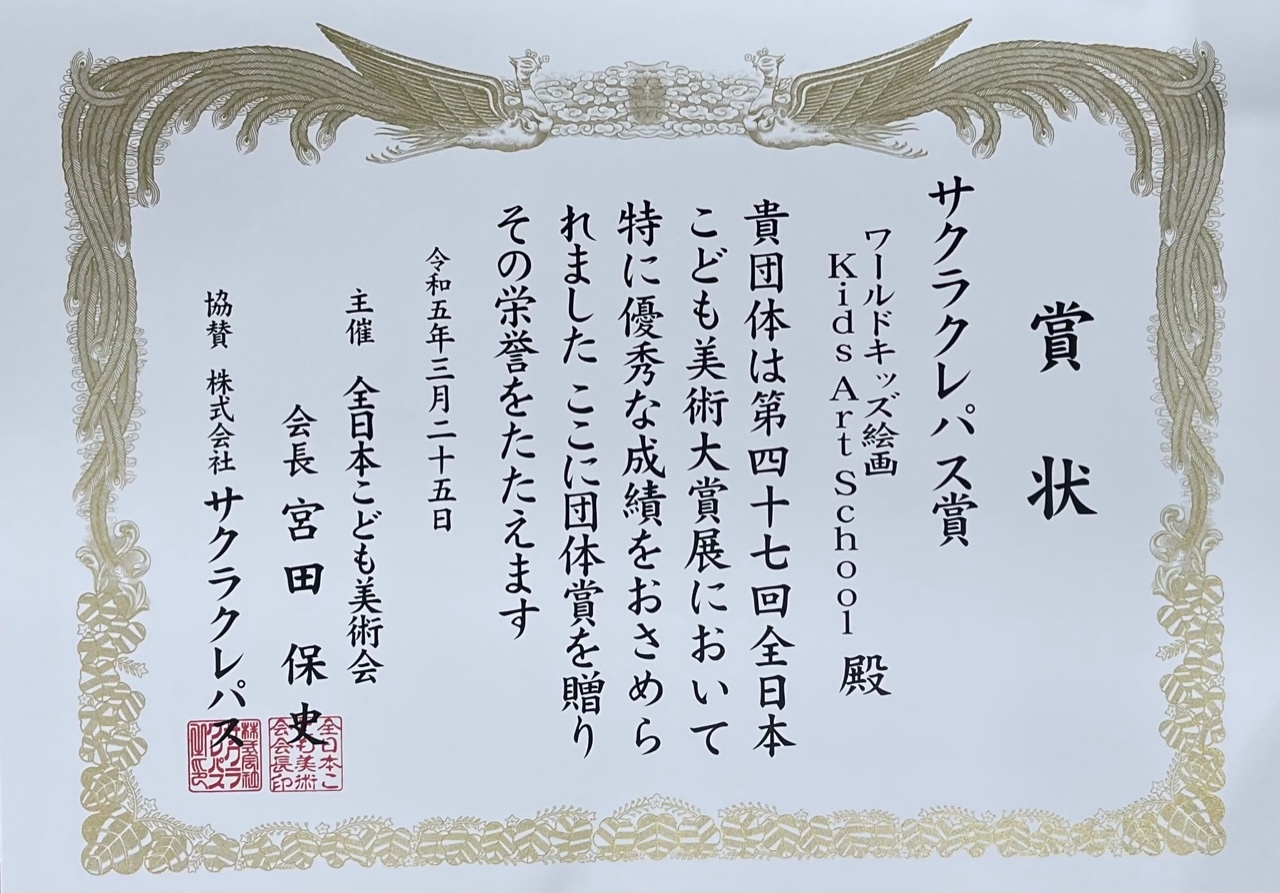 賞状
サクラクレパス賞
ワールドキッズ絵画
Kids Art School 殿
貴団体は第四十七回全日本
こども美術大賞展において
特に優秀な成績をおさめら
れました ここに団体賞を贈り
その栄誉をたたえます
令和五年三月二十五日
主催 全日本こども美術会
会長 宮田保史
協賛 株式会社 サクラクレパス
全日本こ
ども美術
会会長印
株式会社
サクラ
クレパス
之印